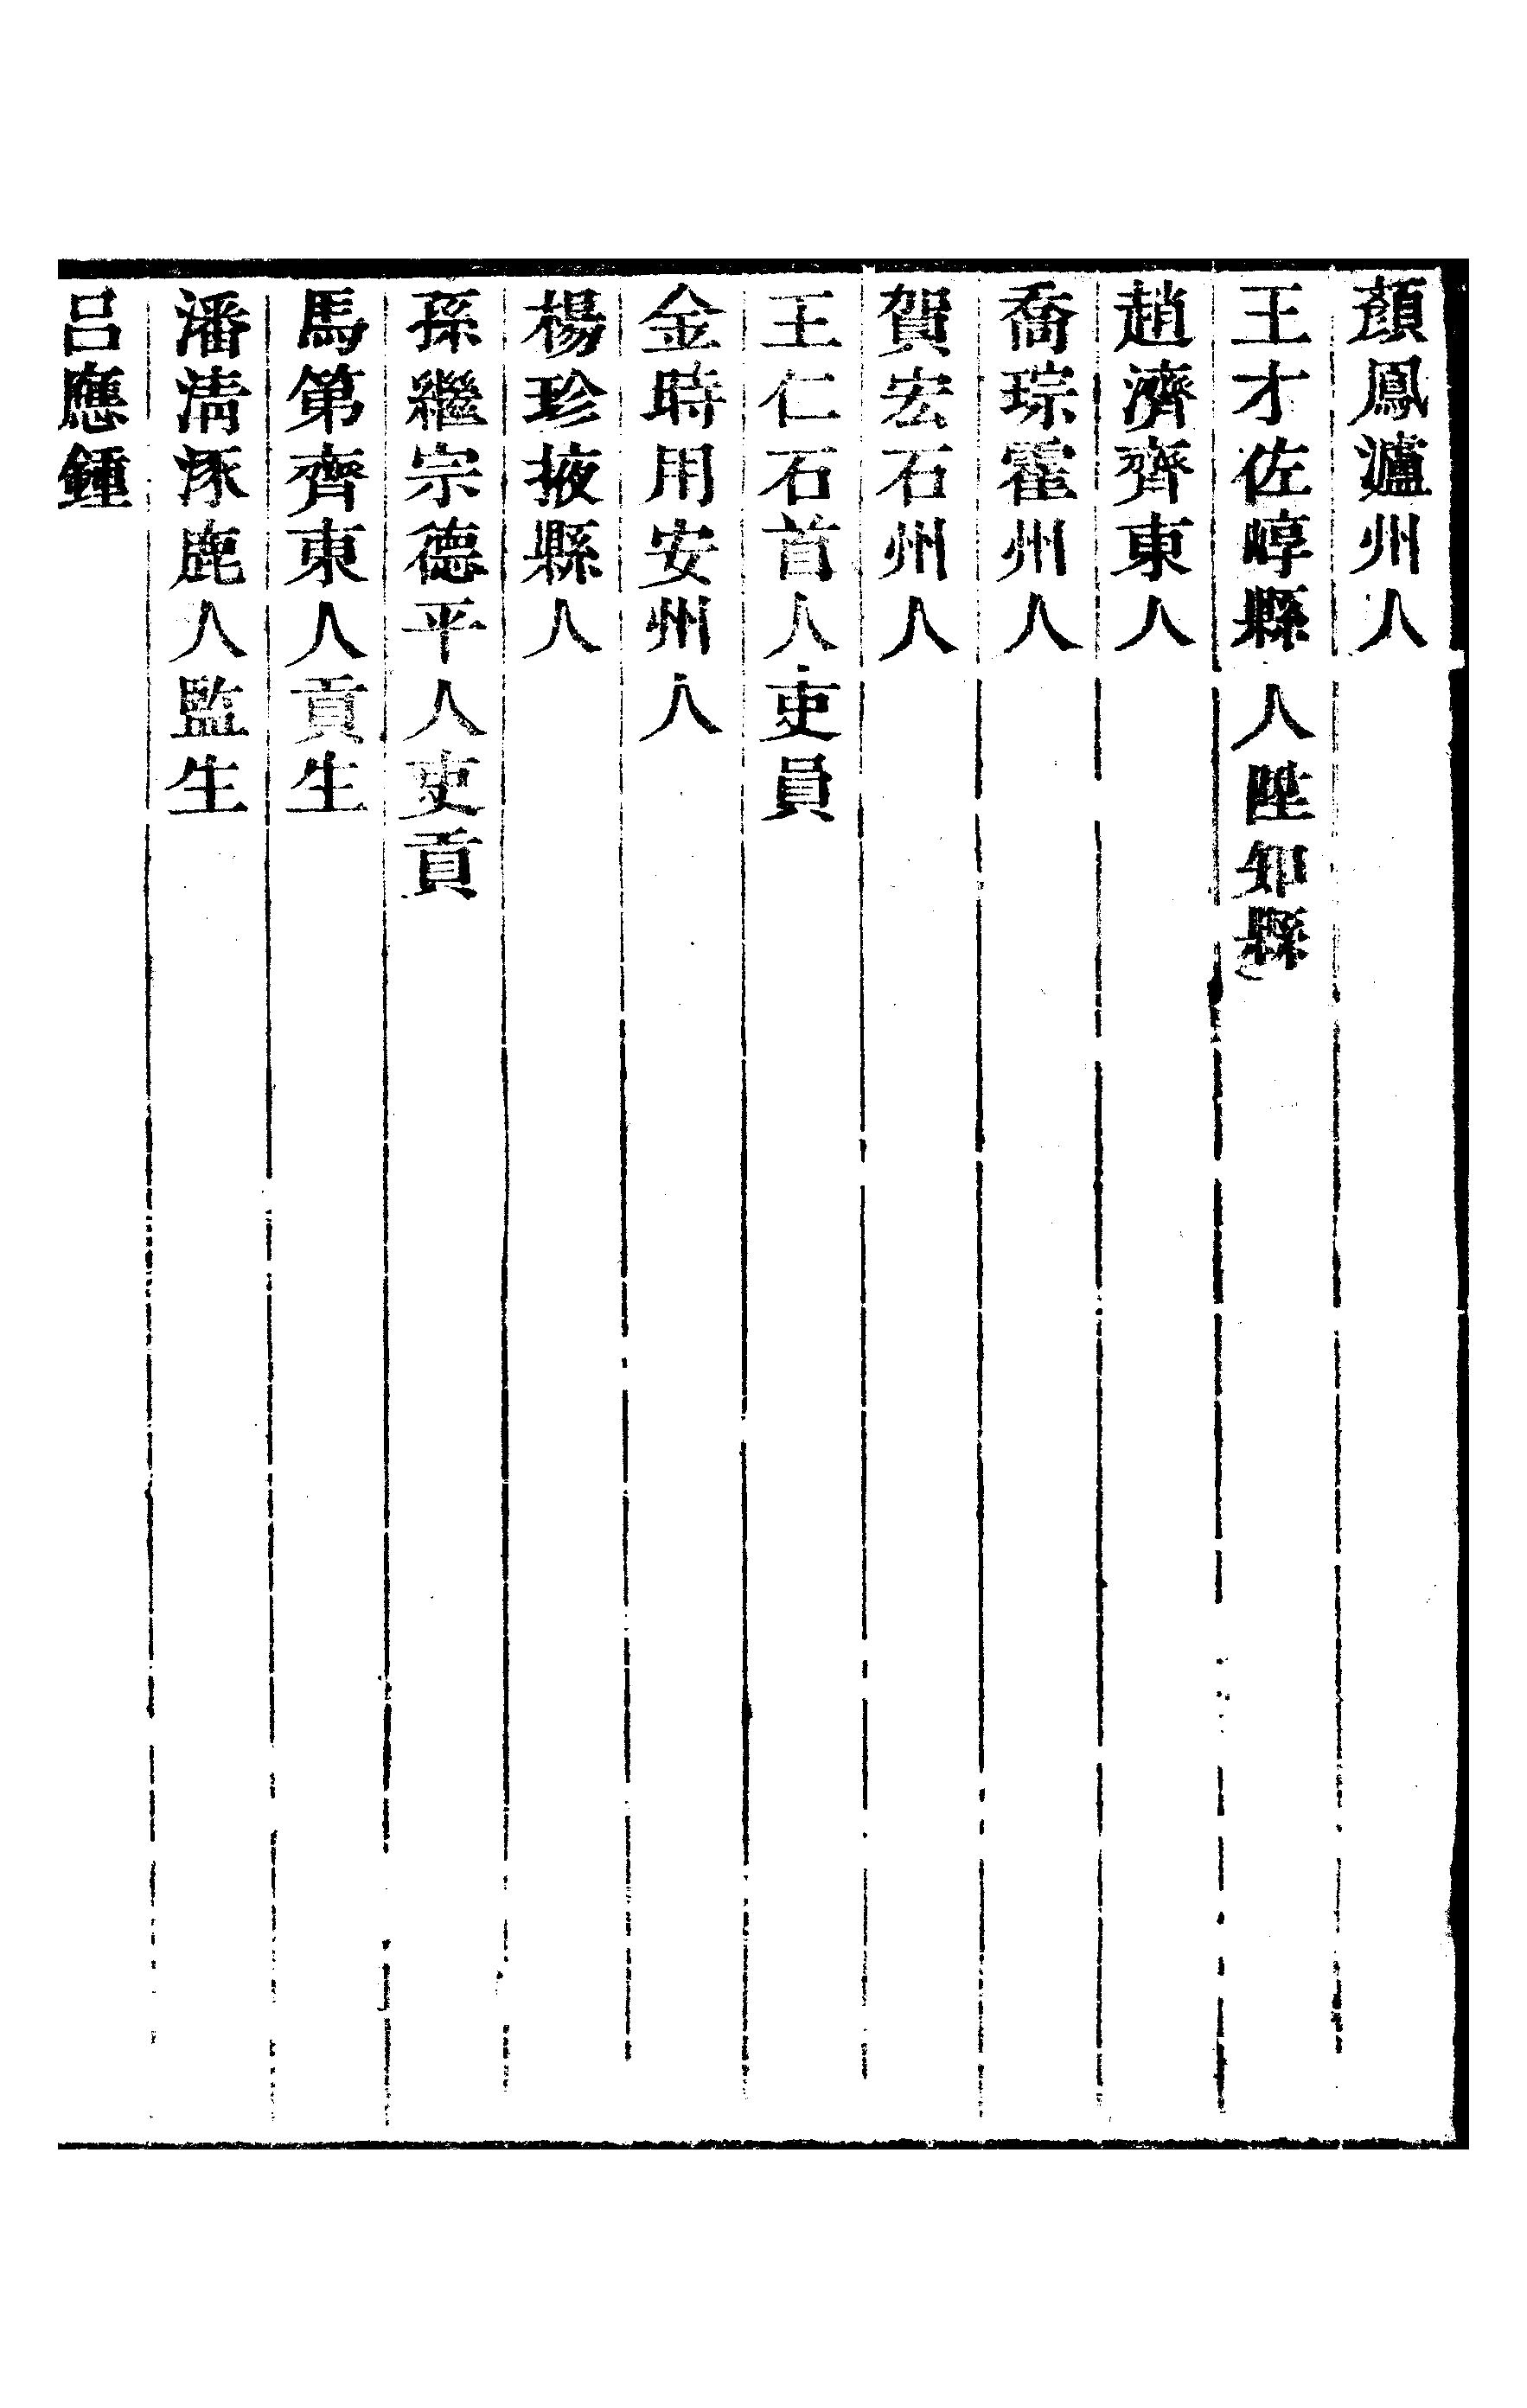 顏鳳瀘州人
王才佐崞縣人陞知縣
趙濟齊東人
喬琮霍州人
賀宏石州人
王仁石首人吏員
金時用安州人
楊珍掖縣人
孫繼宗德平人吏貢
馬第齊東人貢生
潘淸涿鹿人監生
呂應鍾